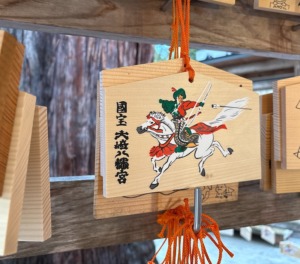 國宝
大崎八幡宮